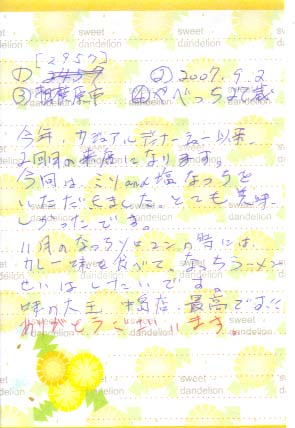 [2957]
① 2457 ② 2007.9.2
③ 相模原市 ④ やべっち27歳
今年、カジュアルディナーショー以来、
2回目の来店になります。
今回は、ミソand塩なっちを
いただきました。とても美味
しかったです。
11月のなっちソロコンの時には、
カレー味を食べて、なっちラーメン
せいはしたいです。
味の大王 店、最高です!!
ありがとうございます。
sweet dandelion